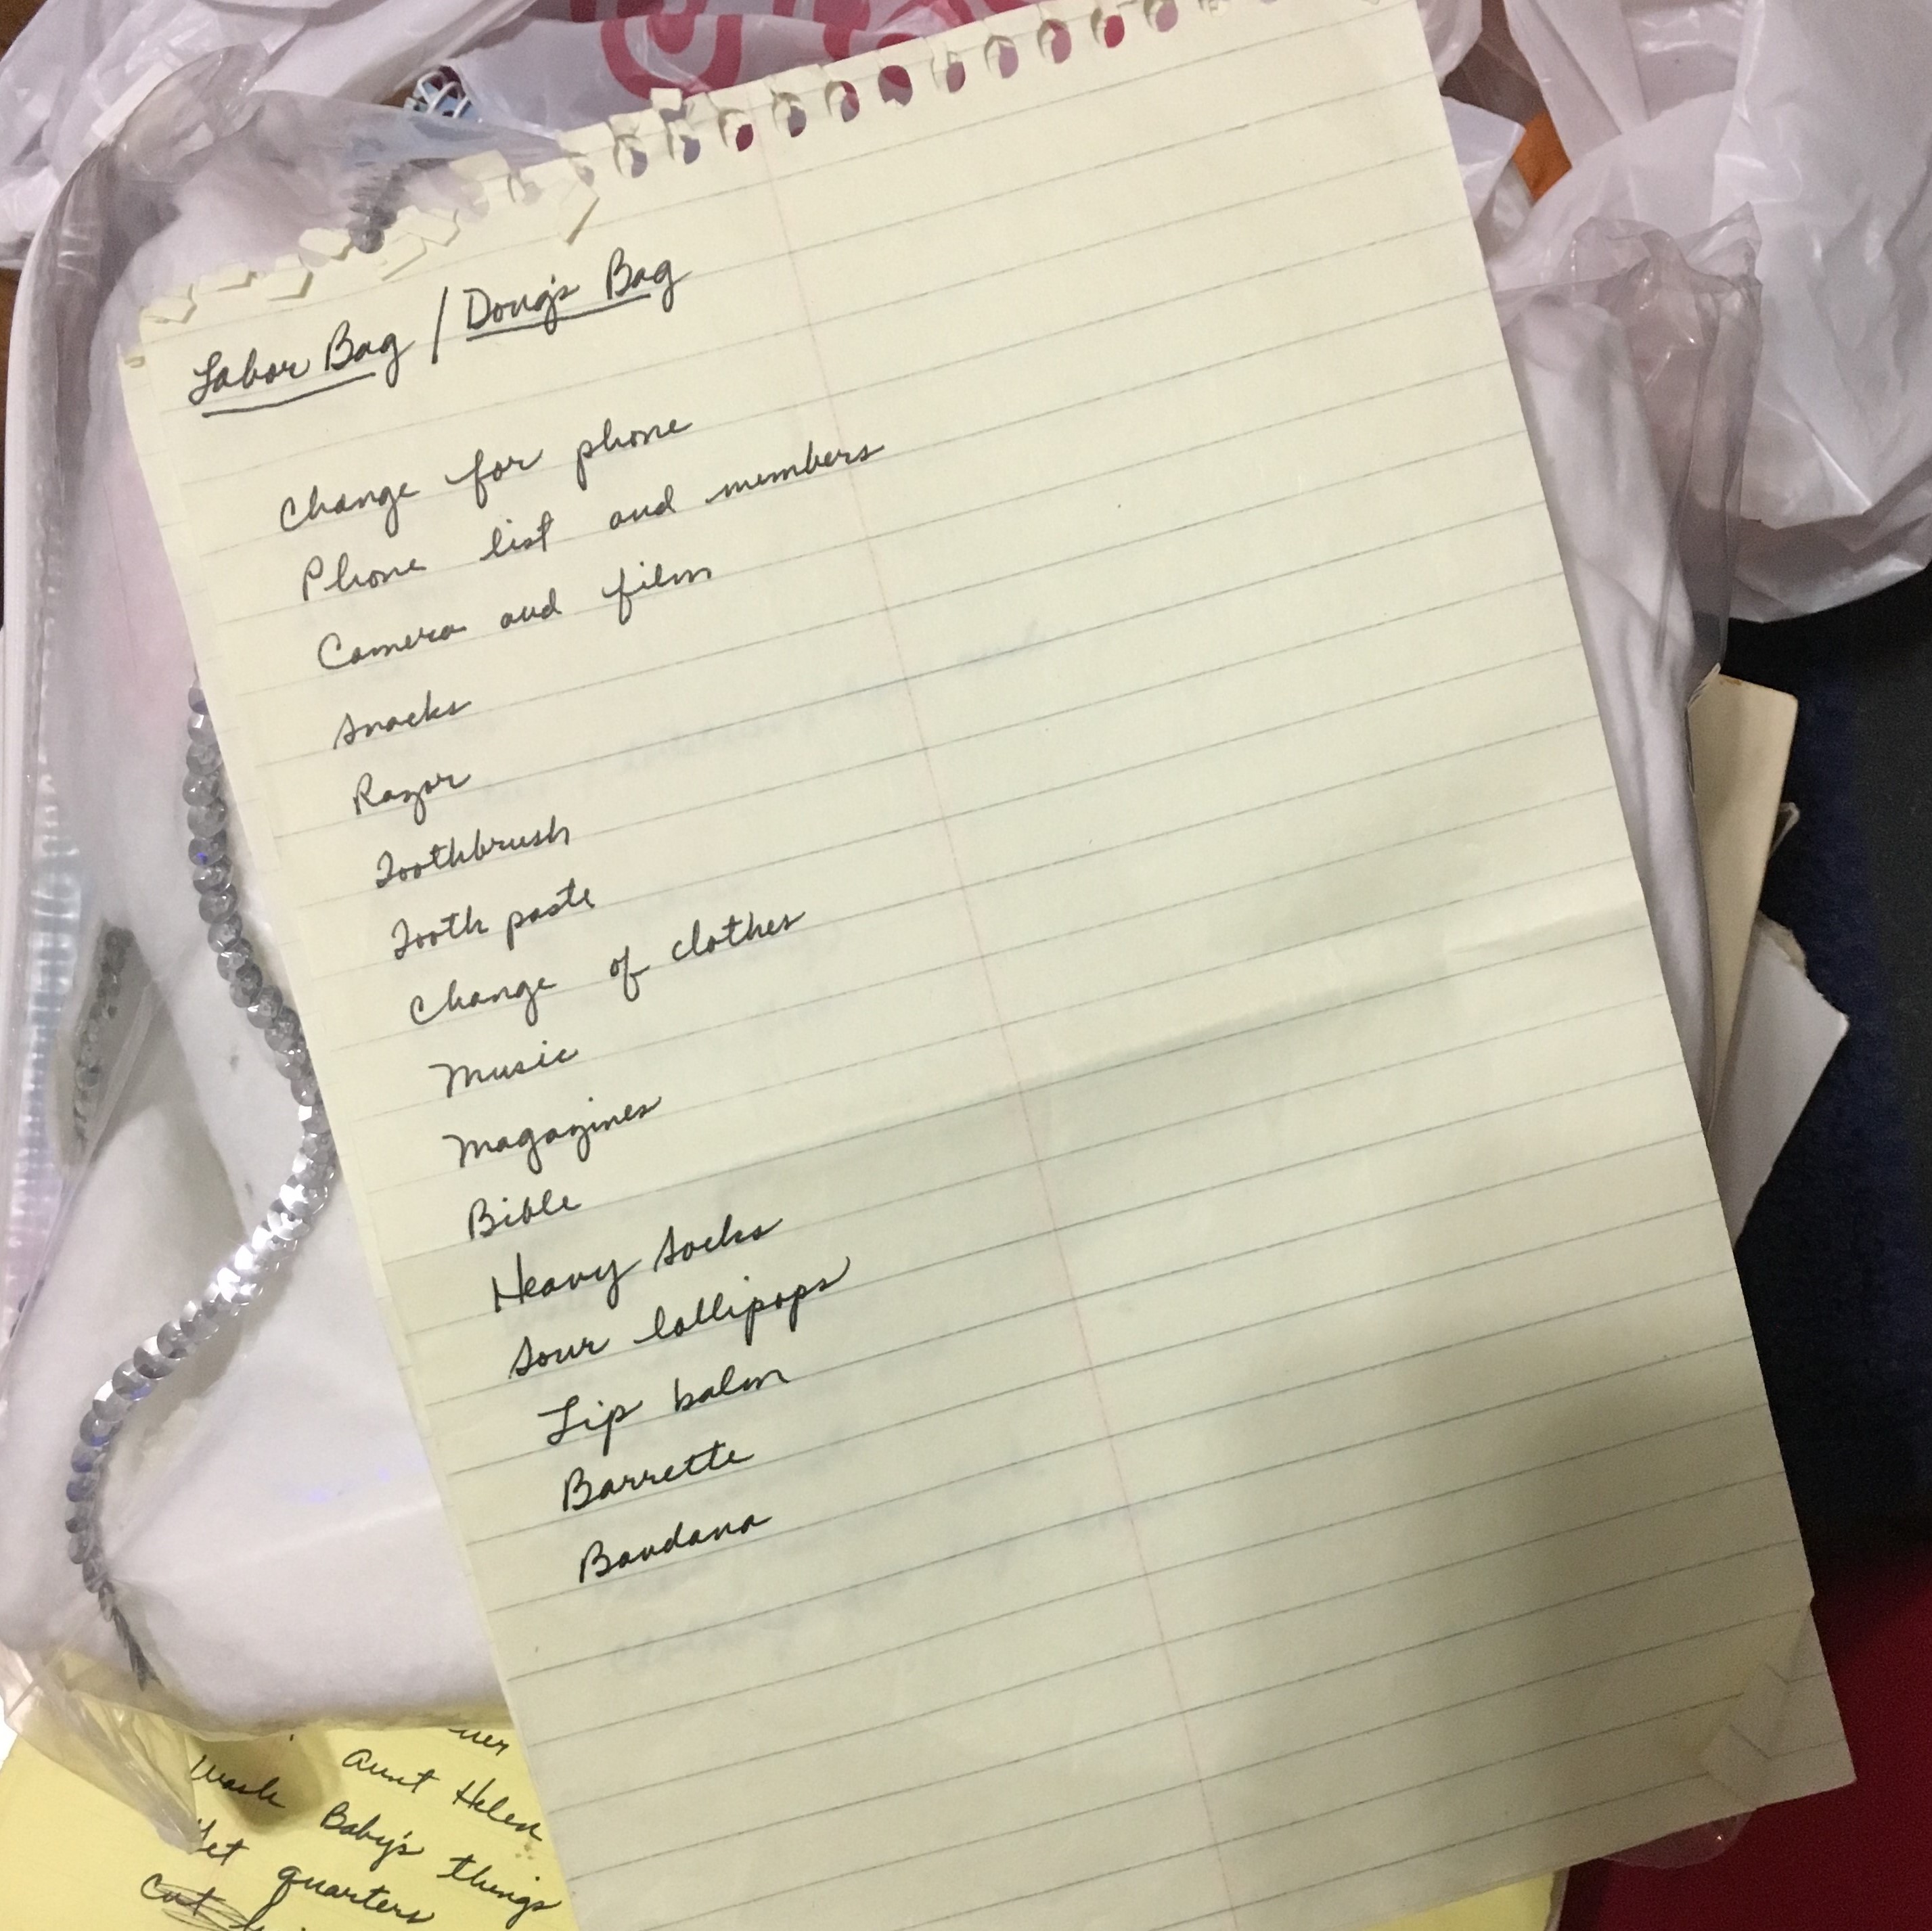 Labor Bag / Doug's Bag
Change for phone
Phone list and members
Camera and film
Snacks
Razor
Toothbrush
Tooth paste
Change of clothes
Music
Magazines
Bible
Heavy Socks
Sour lollipops
Lip balm
Barrette
Bandana
Aunt Helen
Wash Baby's things
Get quarters
Cut